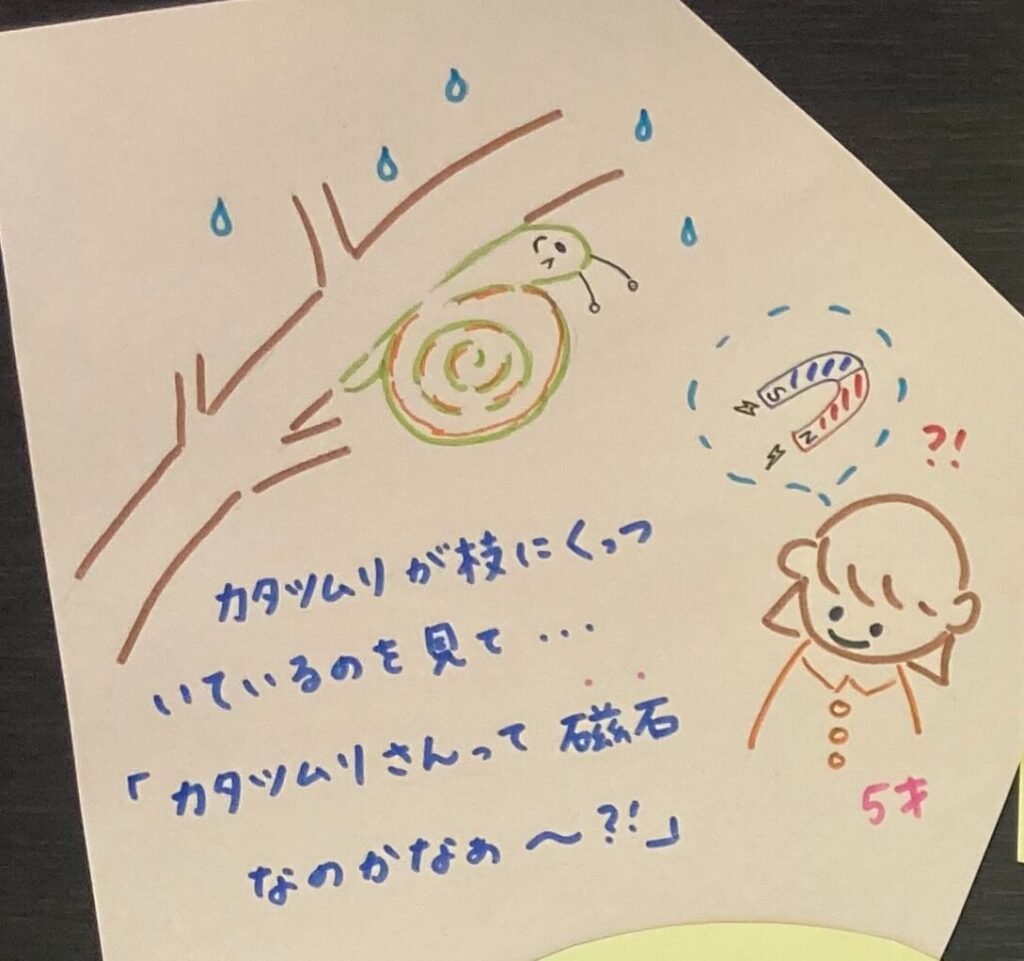 S
N
?!
カタツムリが枝にくっつ
いているのを見て・・・
「カタツムリさんって磁石
なのかなぁ〜?!」
5才